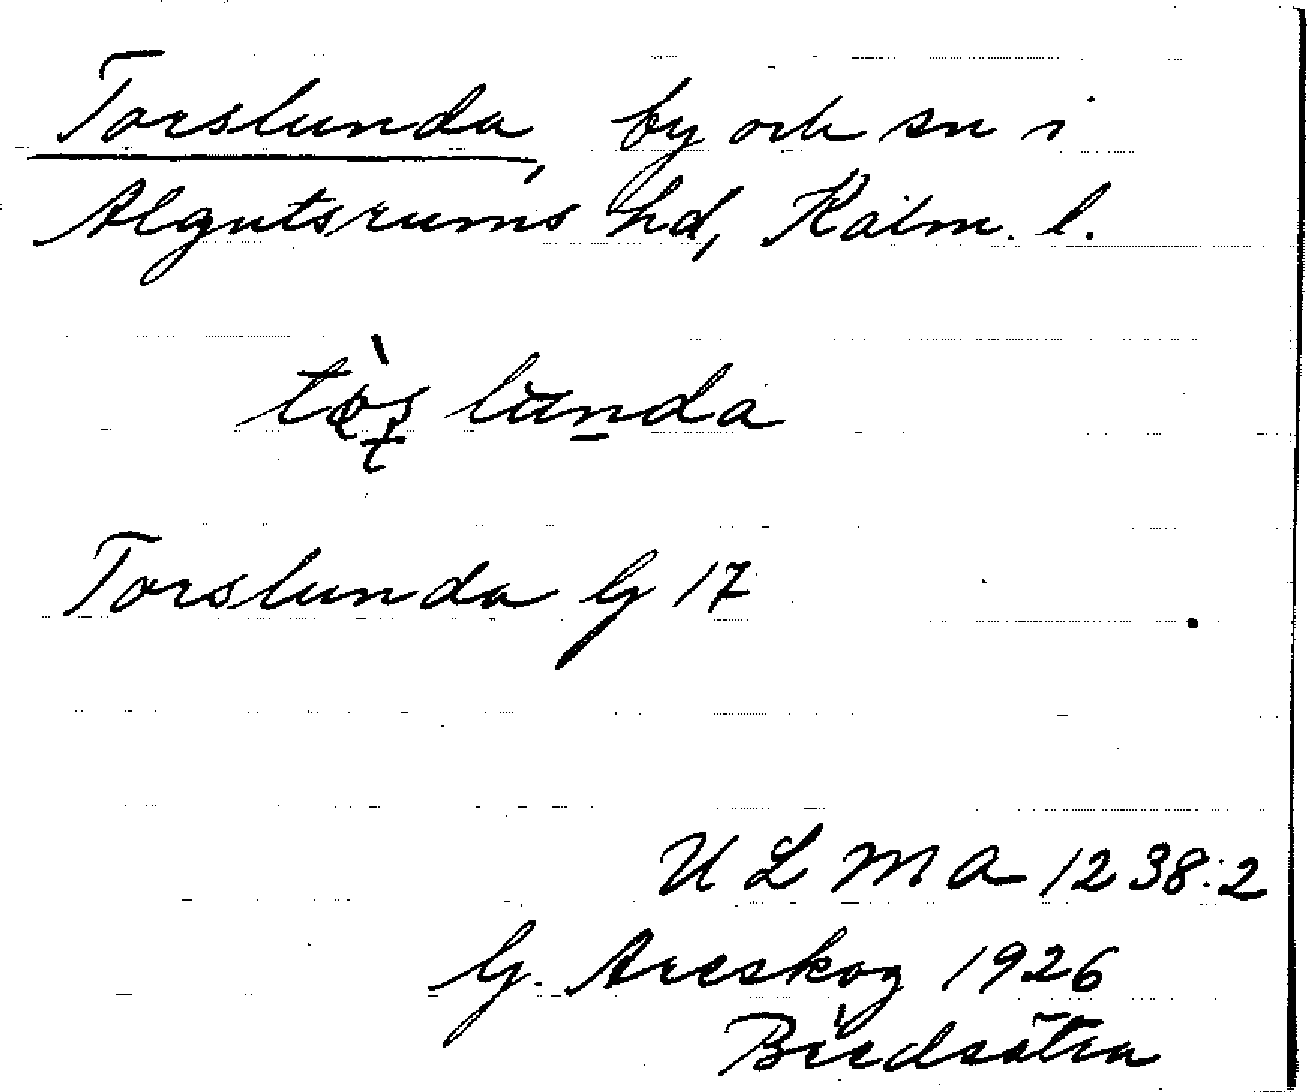 Torslunda, by och sn i
Algutsrums hd, Kalm. l.
lunda
Torslunda G 17
ULMA 1238:2
G. Areskog 1926
Bredsätra